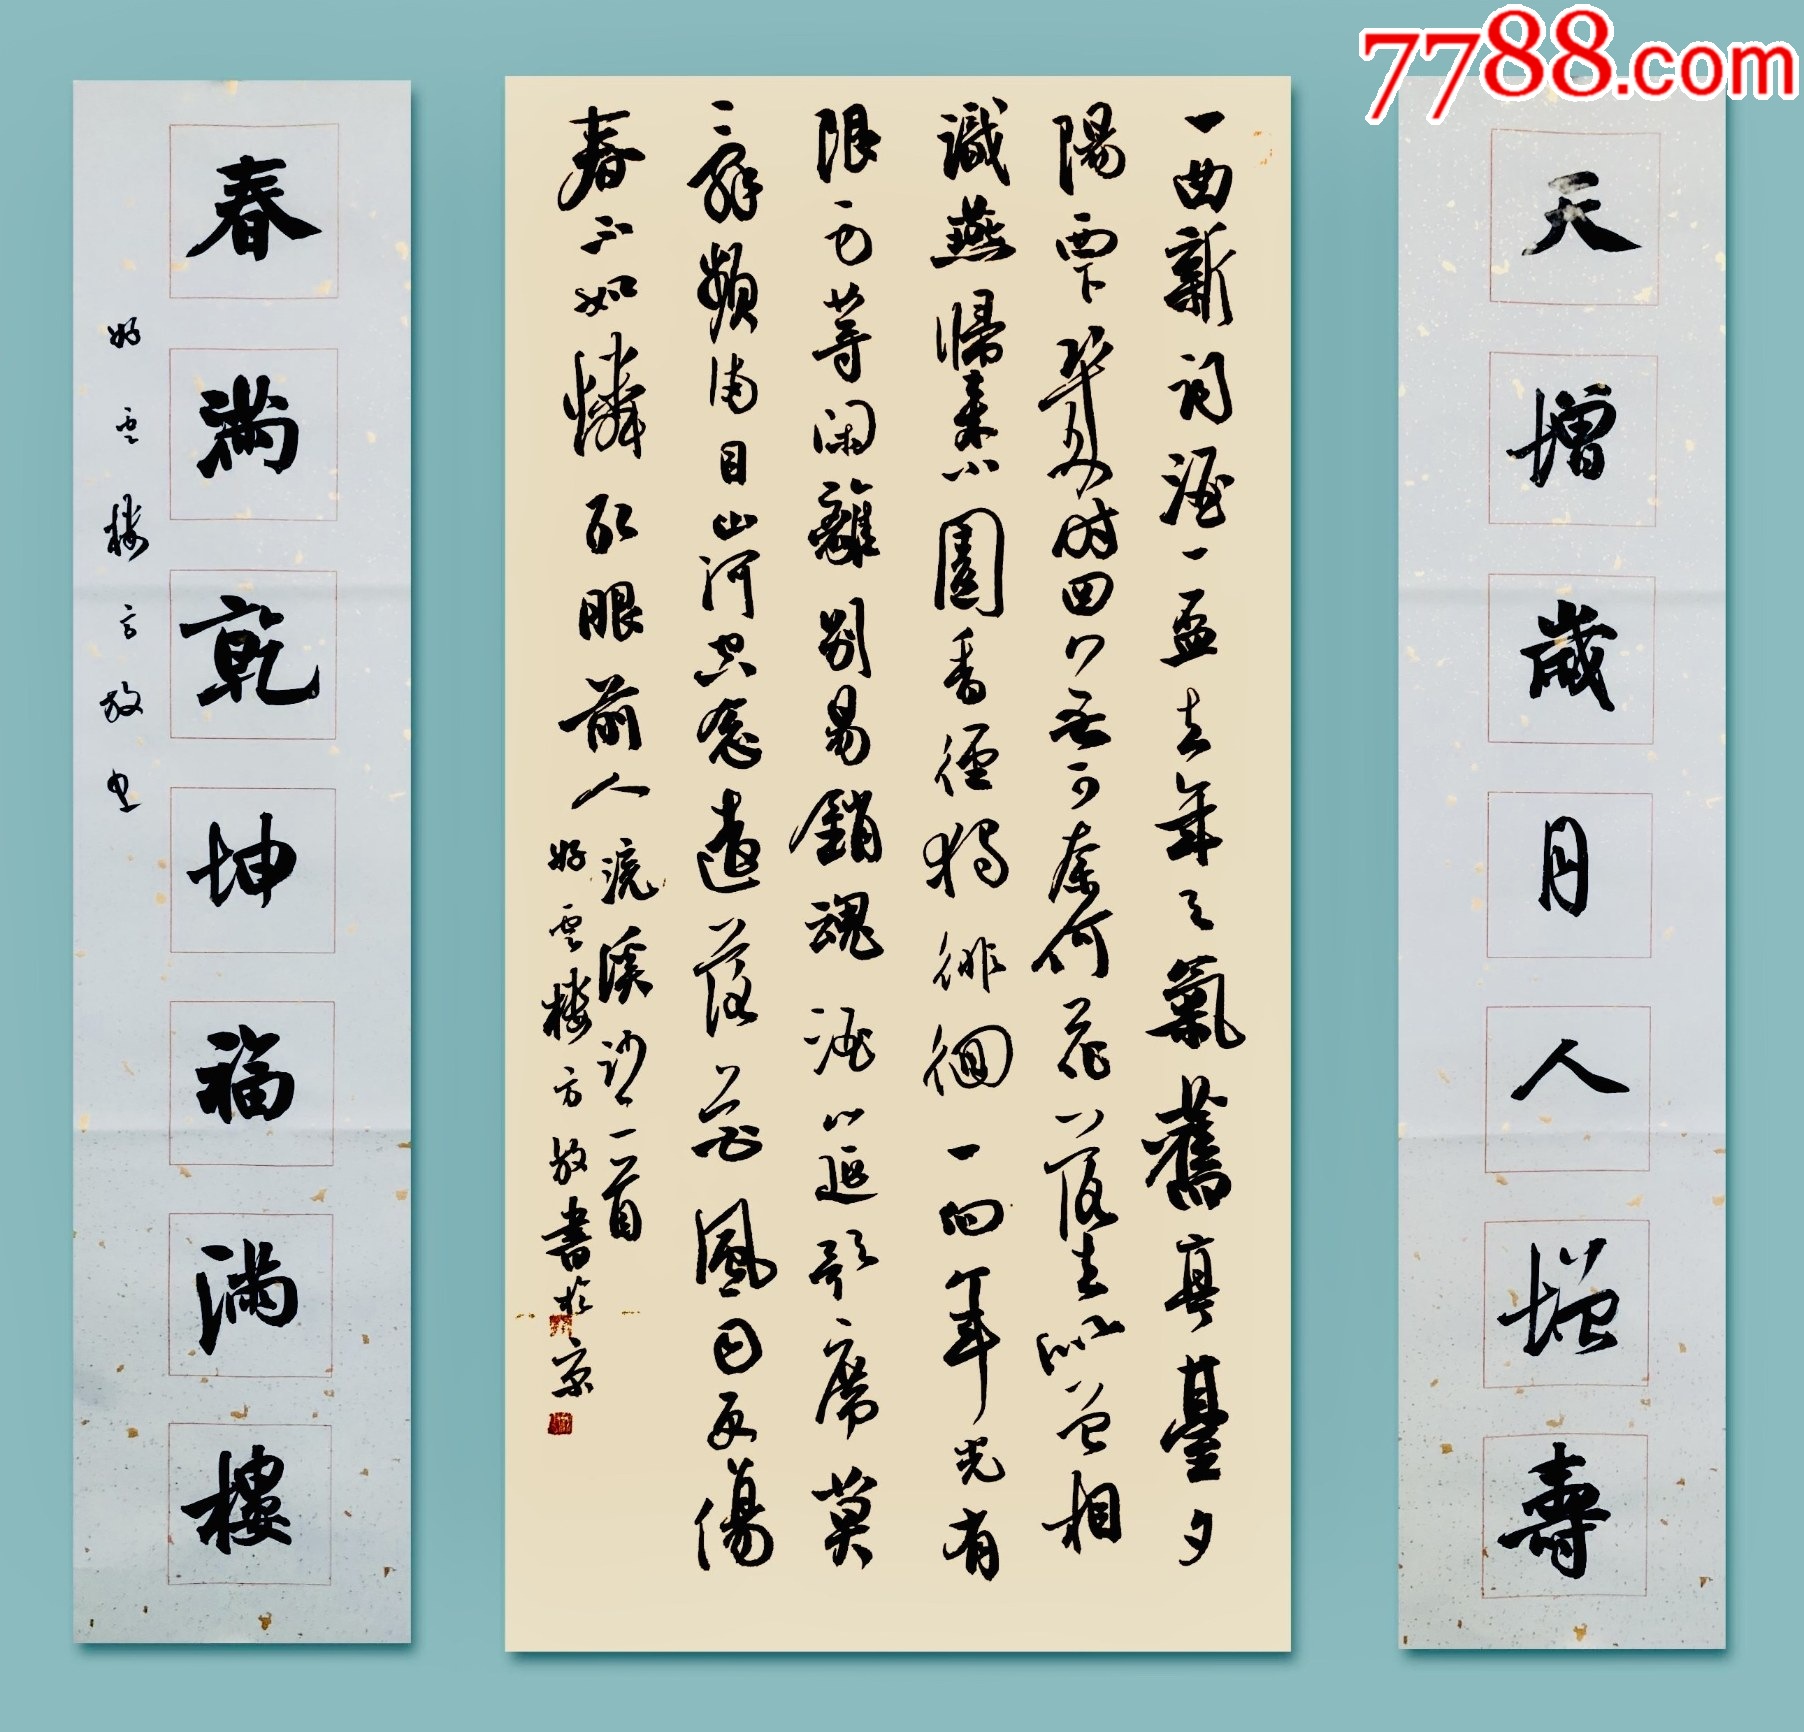 7788.com
天增歲月人增壽
一曲新詞酒一盃去年天氣舊亭臺夕
陽西下幾时回無可奈何花落去似曾相
識燕歸來小園香徑獨徘徊一向年光有
限身等閑離别易銷魂酒筵歌席莫
辭頻滿目山河空念遠落花風雨更傷
春不如憐取眼前人
浣溪沙二首
好雲楼方放書於京
春滿乾坤福滿樓
好雲楼方放书